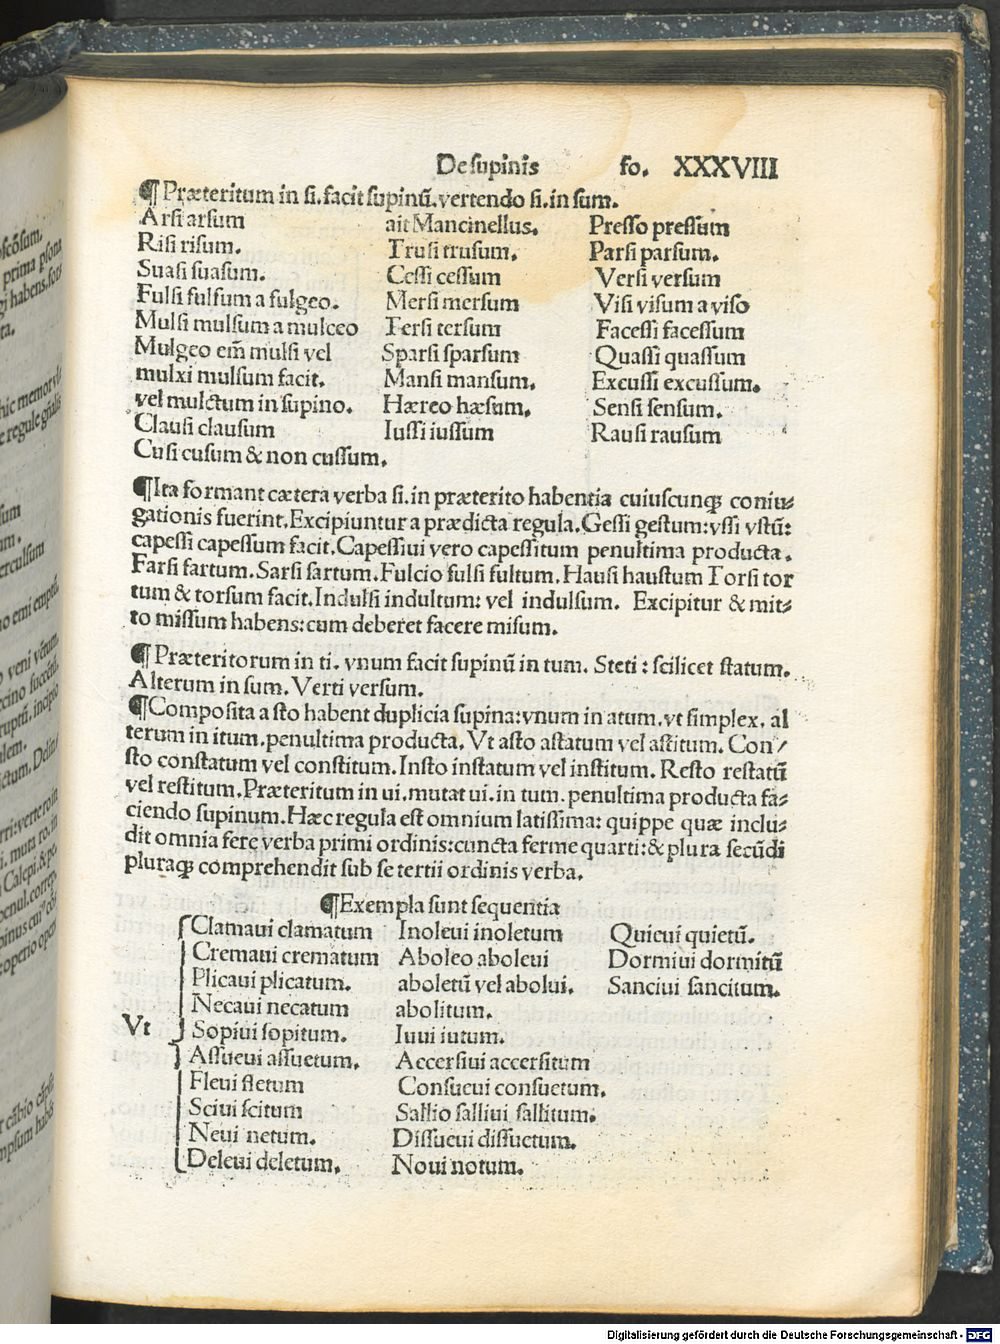 De supinis fo. XXXVIII
¶ Præteritum in si. facit supinū. vertendo si. in sum.
Arsi arsum
Risi risum.
Suasi suasum.
Fulsi fulsum a fulgeo.
Mulsi mulsum a mulceo
Mulgeo em̄ mulsi vel
mulxi mulsum facit.
vel mulctum in supino.
Clausi clausum
Cusi cusum & non cussum.
ait Mancinellus.
Trusi trusum.
Cessi cessum
Mersi mersum
Tersi tersum
Sparsi sparsum
Mansi mansum.
Hæreo hæsum.
Iussi iussum
Presso pressum
Parsi parsum.
Versi versum
Visi visum a viso
Facessi facessum
Quassi quassum
Excussi excussum.
Sensi sensum.
Rausi rausum
¶Ita formant cætera verba si. in præterito habentia cuiuscunqꝫ coniu⸗
gationis fuerint. Excipiuntur a prædicta regula. Gessi gestum: vssi vstū:
capessi capessum facit. Capessiui vero capessitum penultima producta.
Farsi fartum. Sarsi sartum. Fulcio fulsi fultum. Hausi haustum Torsi tor
tum & torsum facit. Indulsi indultum: vel indulsum. Excipitur & mit⸗
to missum habens: cum deberet facere misum.
¶ Præteritorum in ti. vnum facit supinū in tum. Steti: scilicet statum.
Alterum in sum. Verti versum.
¶Composita a sto habent duplicia supina: vnum in atum. vt simplex. al
terum in itum. penultima producta. Vt asto astatum vel astitum. Con/
sto constatum vel constitum. Insto instatum vel institum. Resto restatū
vel restitum. Præteritum in ui. mutat ui. in tum. penultima producta fa⸗
ciendo supinum. Hæc regula est omnium latissima: quippe quæ inclu⸗
dit omnia fere verba primi ordinis: cuncta ferme quarti: & plura secūdi
pluraqꝫ comprehendit sub se tertii ordinis verba.
¶Exempla sunt sequentia
Vt
Clamaui clamatum
Cremaui crematum
Plicaui plicatum.
Necaui necatum
Sopiui sopitum.
Assueui assuetum.
Fleui fletum
Sciui scitum
Neui netum.
Deleui deletum.
Inoleui inoletum
Aboleo aboleui
aboletū vel abolui.
abolitum.
Iuui iutum.
Accersiui accersitum
Consueui consuetum.
Sallio salliui sallitum.
Dissueui dissuetum.
Noui notum.
Quieui quietū.
Dormiui dormitū
Sanciui sancitum.
Digitalisierung gefördert durch die Deutsche Forschungsgemeinschaft - DFG